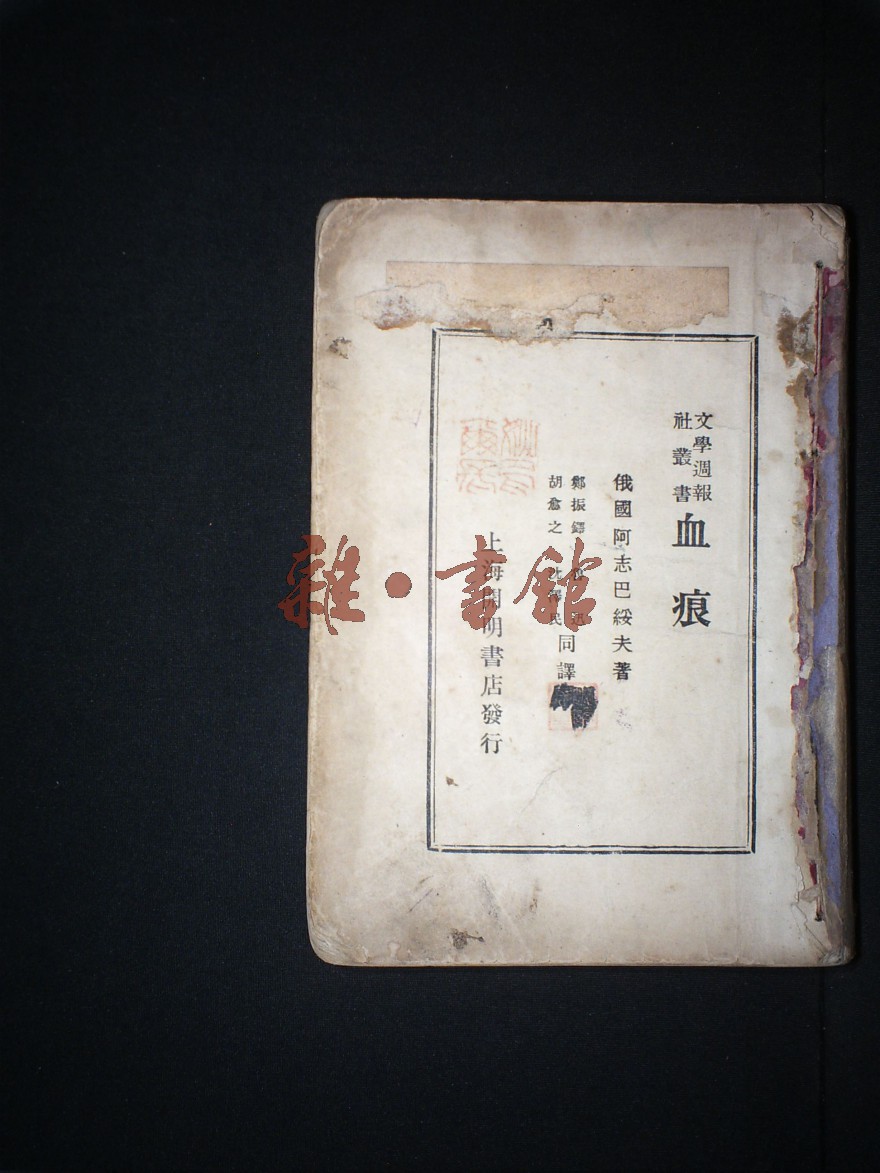 文學週報
社叢書
血痕
俄國阿志巴綏夫著
鄭振鐸 魯迅
胡愈之 沈澤民
同譯
上海開明書店發行
雜·書館